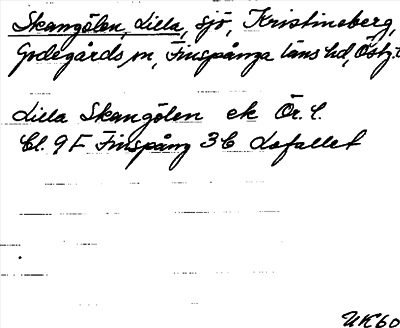 Skangölen, Lilla, sjö, Kristineberg,
Godegårds sn, Finspånga läns hd, Östg.
Lilla Skangölen ek Ör. l.
Bl. 9 F Finspång 3 C Lofallet
UK60